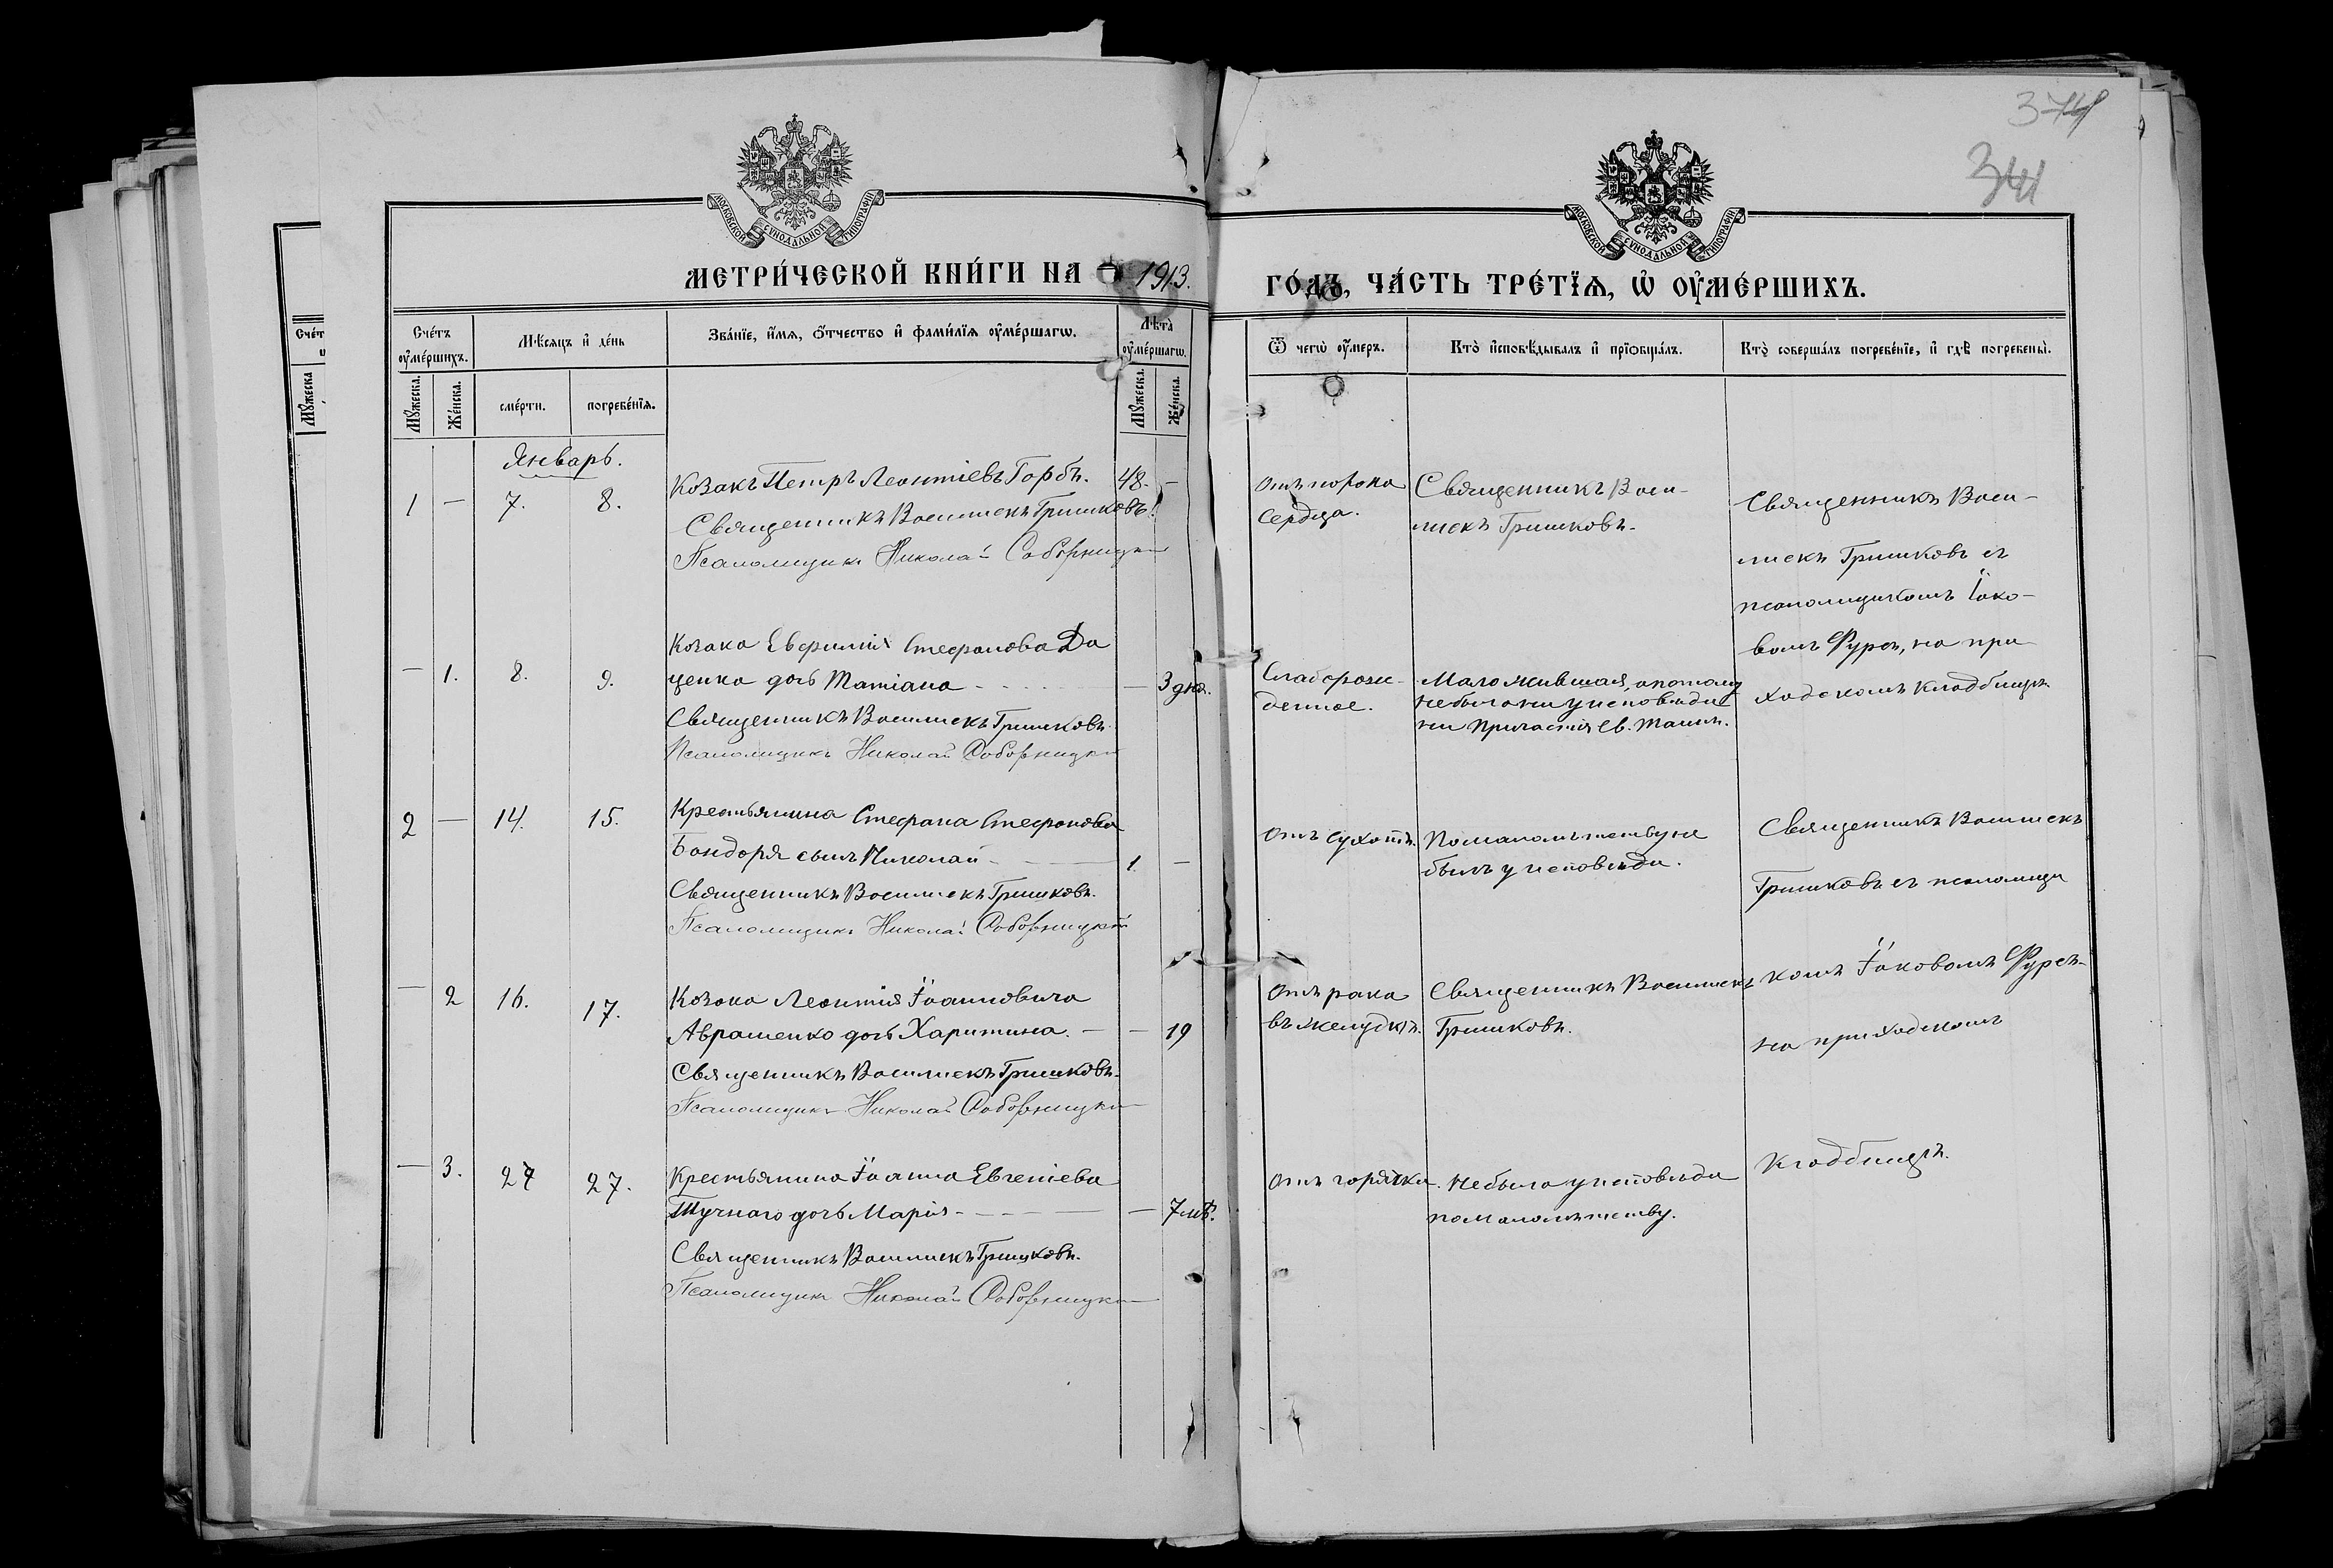 374
341
МОСКОВСКОЙ СѴНОДАЛЬНОЙ ТИПОГРАФІИ
МОСКОВСКОЙ СѴНОДАЛЬНОЙ ТИПОГРАФІИ
МЕТРИ́ЧЕСКОЙ КНИ́ГИ НА 1913.
ГО́ДЪ, ЧА́СТЬ ТРЕ́ТЇѦ, Ѡ҆ ОУ҆МЕ́РШИХЪ.
Сче́т
Мꙋ́жеска
Сче́тъ оу҆ме́ршихъ.
Мѣ́сѧцъ и҆ де́нь
Зва́нїе, и҆́мѧ, ѻ҆́тчество и҆ фами́лїѧ оу҆ме́ршагѡ.
Лѣ̑та оу҆ме́ршагѡ.
Ѿ чегѡ̀ оу҆́меръ.
Кто̀ и҆сповѣ́дывалъ и҆ прїѡбща́лъ.
Кто̀ соверша́лъ погребе́нїе, и҆ гдѣ̀ погребены̀.
Мꙋ́жеска.
Же́нска.
сме́рти.
погребе́нїѧ.
Мꙋ́жеска.
Же́нска.
Январь.
1 — 7. 8.
Козакъ Петръ Леонтіевъ Горбъ. 48. —
Священникъ Василискъ Гришковъ.
Псаломщикъ Николай Соборницкій
Отъ порока
сердца.
Священникъ Васи-
лискъ Гришковъ.
Священникъ Васи-
лискъ Гришковъ съ
псаломщикомъ Іако-
вомъ Фурса, на при-
ходскомъ кладбищѣ.
— 1. 8. 9.
Козака Евфимія Стефанова Да
ценка дочь Татіана — 3 дня.
Священникъ Василискъ Гришковъ.
Псаломщикъ Николай Соборницкій
Слаборож-
денное.
Мало жившая, а потому
не была ни у исповѣди
ни причастія Св. Таинъ.
2 — 14. 15.
Крестьянина Стефана Стефанова
Бондаря сынъ Николай 1. —
Священникъ Василискъ Гришковъ.
Псаломщикъ Николай Соборницкій
Отъ сухотъ.
По малолѣтству не
былъ у исповѣди.
Священникъ Василискъ
Гришковъ съ псаломщи
комъ Іаковомъ Фурса-
на приходскомъ
кладбищѣ.
— 2 16. 17.
Козака Леонтія Іоанновича
Авраменко дочь Харитина. — — 19
Священникъ Василискъ Гришковъ.
Псаломщикъ Николай Соборницкій
Отъ рака
въ желудкѣ.
Священникъ Василискъ
Гришковъ.
— 3. 27.
Крестьянина Іоанна Евгеніева
Тучнаго дочь Марія — — 7 лѣт.
Священникъ Василискъ Гришковъ.
Псаломщикъ Николай Соборницкій
Отъ горячки.
Не была у исповѣди
по малолѣтству.